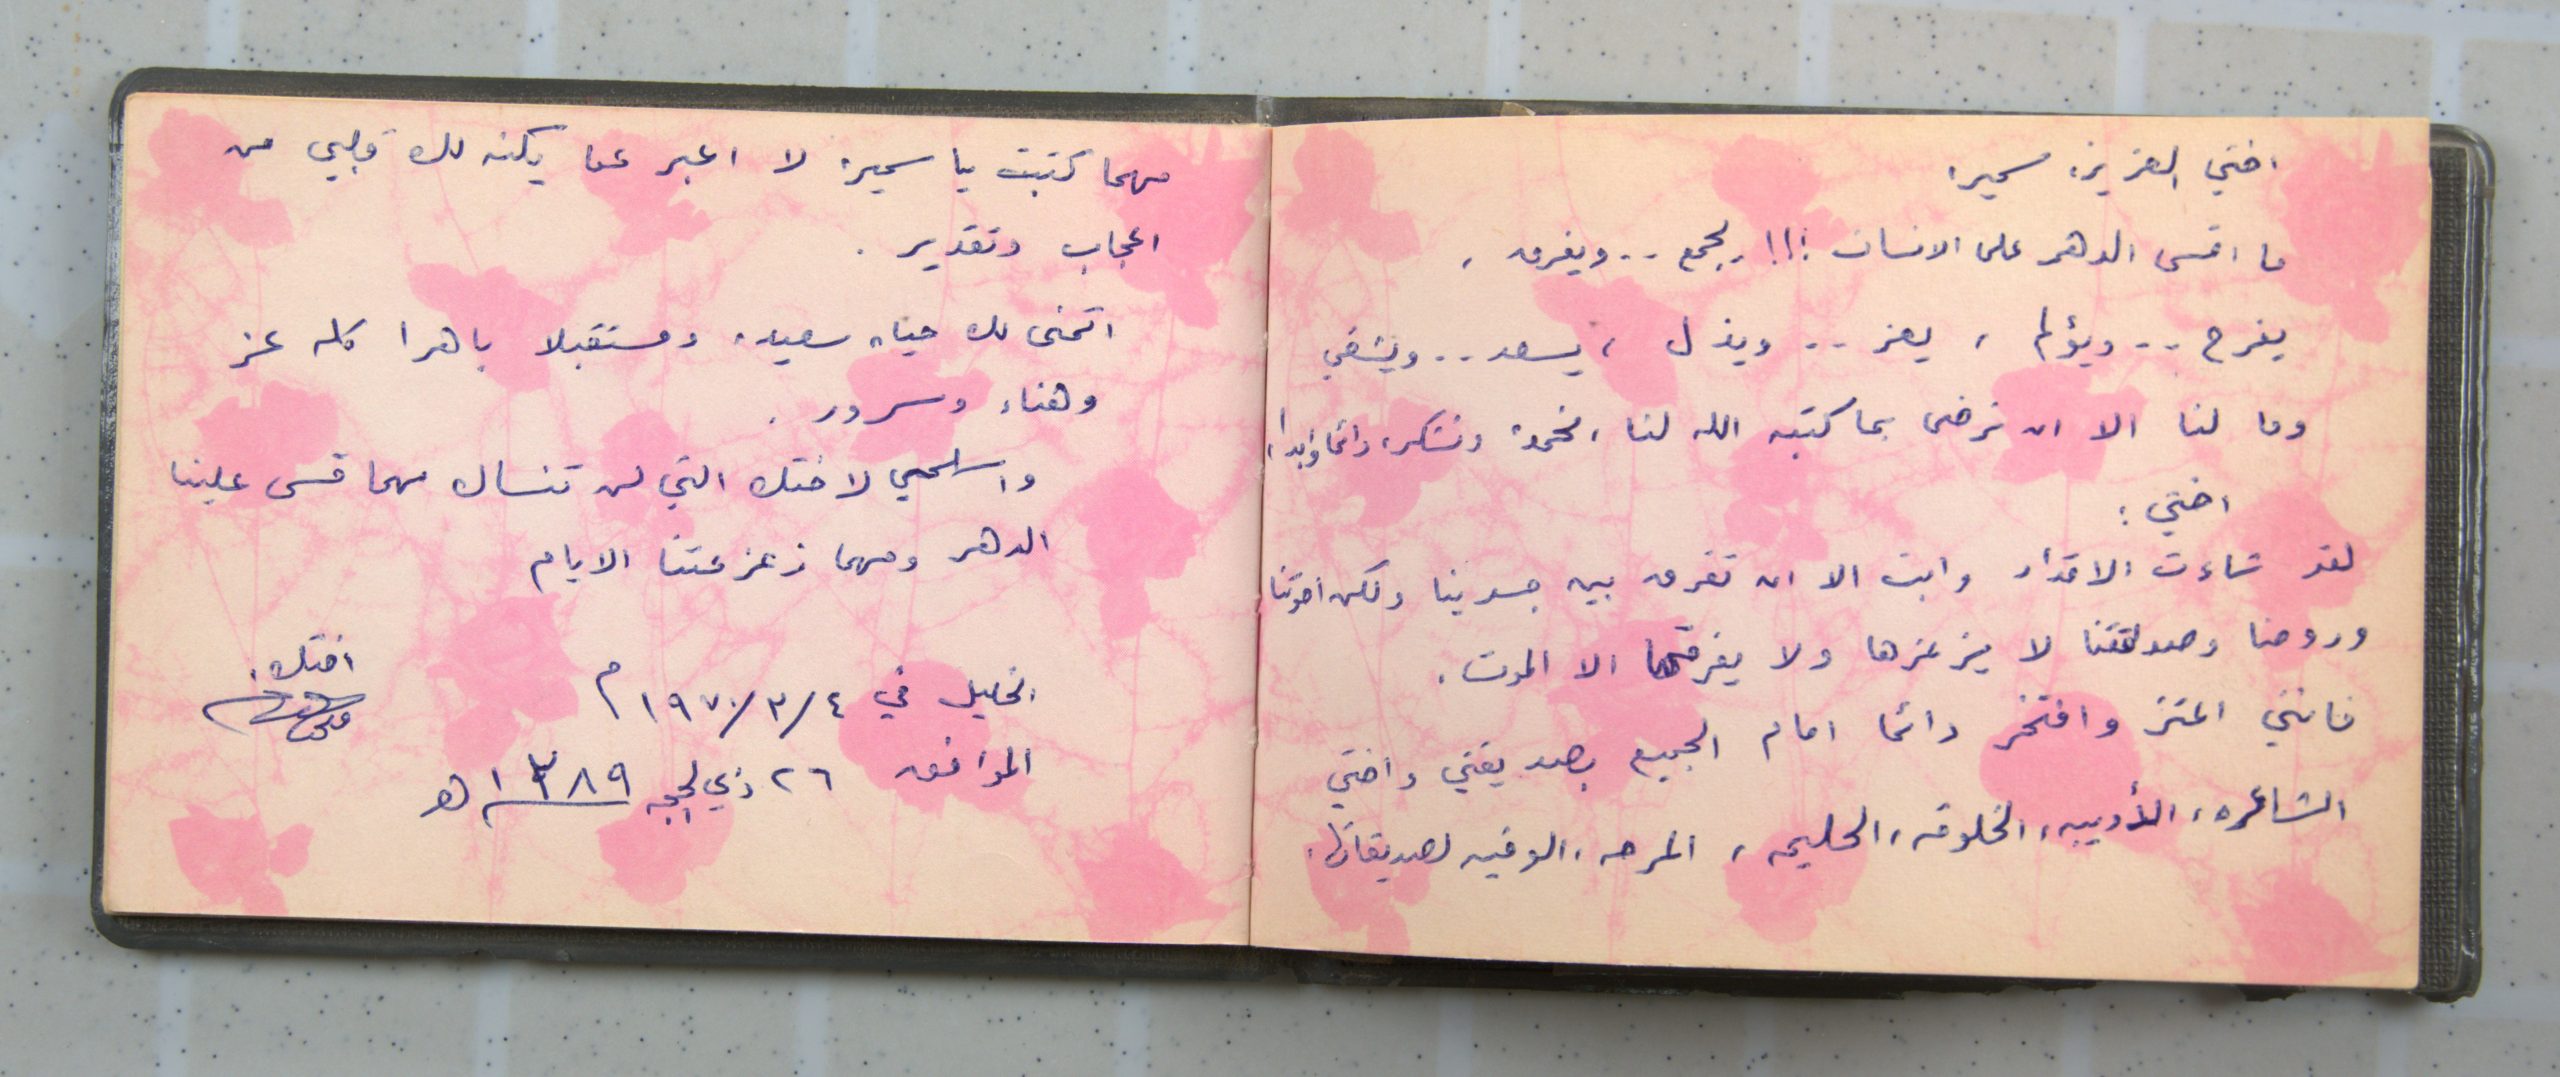 اختي العزيزة سميرة
ما اقسى الدهر على الانسان !!! يجمع .. ويفرق ،
يفرح .. ويؤلم ، يعز .. ويذل ، يسعد .. ويشقي
وما لنا الا ان نرضى بما كتبه الله لنا ، نحمده ونشكره دائما وابدا ،
اختي :
لقد شاءت الاقدار وابت الا ان تفرق بين جسدينا ولكن اخوتنا
وروحنا وصداقتنا لا يزعزها ولا يفرقها الا الموت .
فانني اعتز وافتخر دائما امام الجميع بصديقتي واختي
الشاعره ، الأديبه ، الخلوقه ، الحليمه ، المرحه ، الوفيه لصديقاتها .
مهما كتبت يا سميرة لا اعبر عما يكنه لك قلبي من
اعجاب وتقدير .
اتمنى لك حياة سعيدة ومستقبلا باهرا كله عز
وهناء وسرور .
واسلمي لاختك التي لن تنساك مهما قسى علينا
الدهر ومهما زعزعتنا الايام
اختك .
الخليل في ٤/٣/١٩٧٠ م
الموافق ٢٦ ذي الحجه ١٣٨٩ هـ